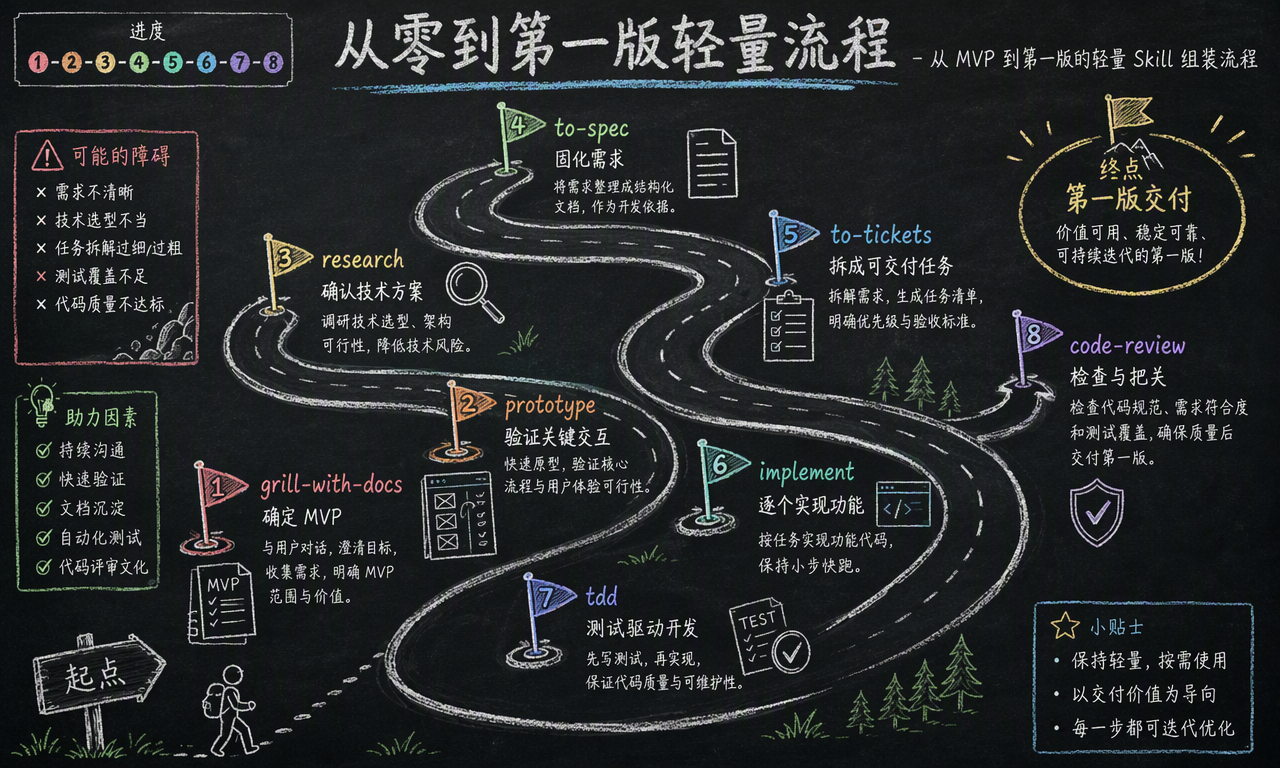 进度
1-2-3-4-5-6-7-8
从零到第一版轻量流程
– 从 MVP 到第一版的轻量 Skill 组装流程
可能的障碍
× 需求不清晰
× 技术选型不当
× 任务拆解过细/过粗
× 测试覆盖不足
× 代码质量不达标
助力因素
持续沟通
快速验证
文档沉淀
自动化测试
代码评审文化
起点
1
grill-with-docs
确定 MVP
与用户对话，澄清目标，
收集需求，明确 MVP
范围与价值。
MVP
2
prototype
验证关键交互
快速原型，验证核心
流程与用户体验可行性。
3
research
确认技术方案
调研技术选型、架构
可行性，降低技术风险。
4
to-spec
固化需求
将需求整理成结构化
文档，作为开发依据。
5
to-tickets
拆成可交付任务
拆解需求，生成任务清单，
明确优先级与验收标准。
6
implement
逐个实现功能
按任务实现功能代码，
保持小步快跑。
</>
7
tdd
测试驱动开发
先写测试，再实现，
保证代码质量与可维护性。
TEST
8
code-review
检查与把关
检查代码规范、需求符合度
和测试覆盖，确保质量后
交付第一版。
终点
第一版交付
价值可用、稳定可靠、
可持续迭代的第一版！
小贴士
• 保持轻量，按需使用
• 以交付价值为导向
• 每一步都可迭代优化